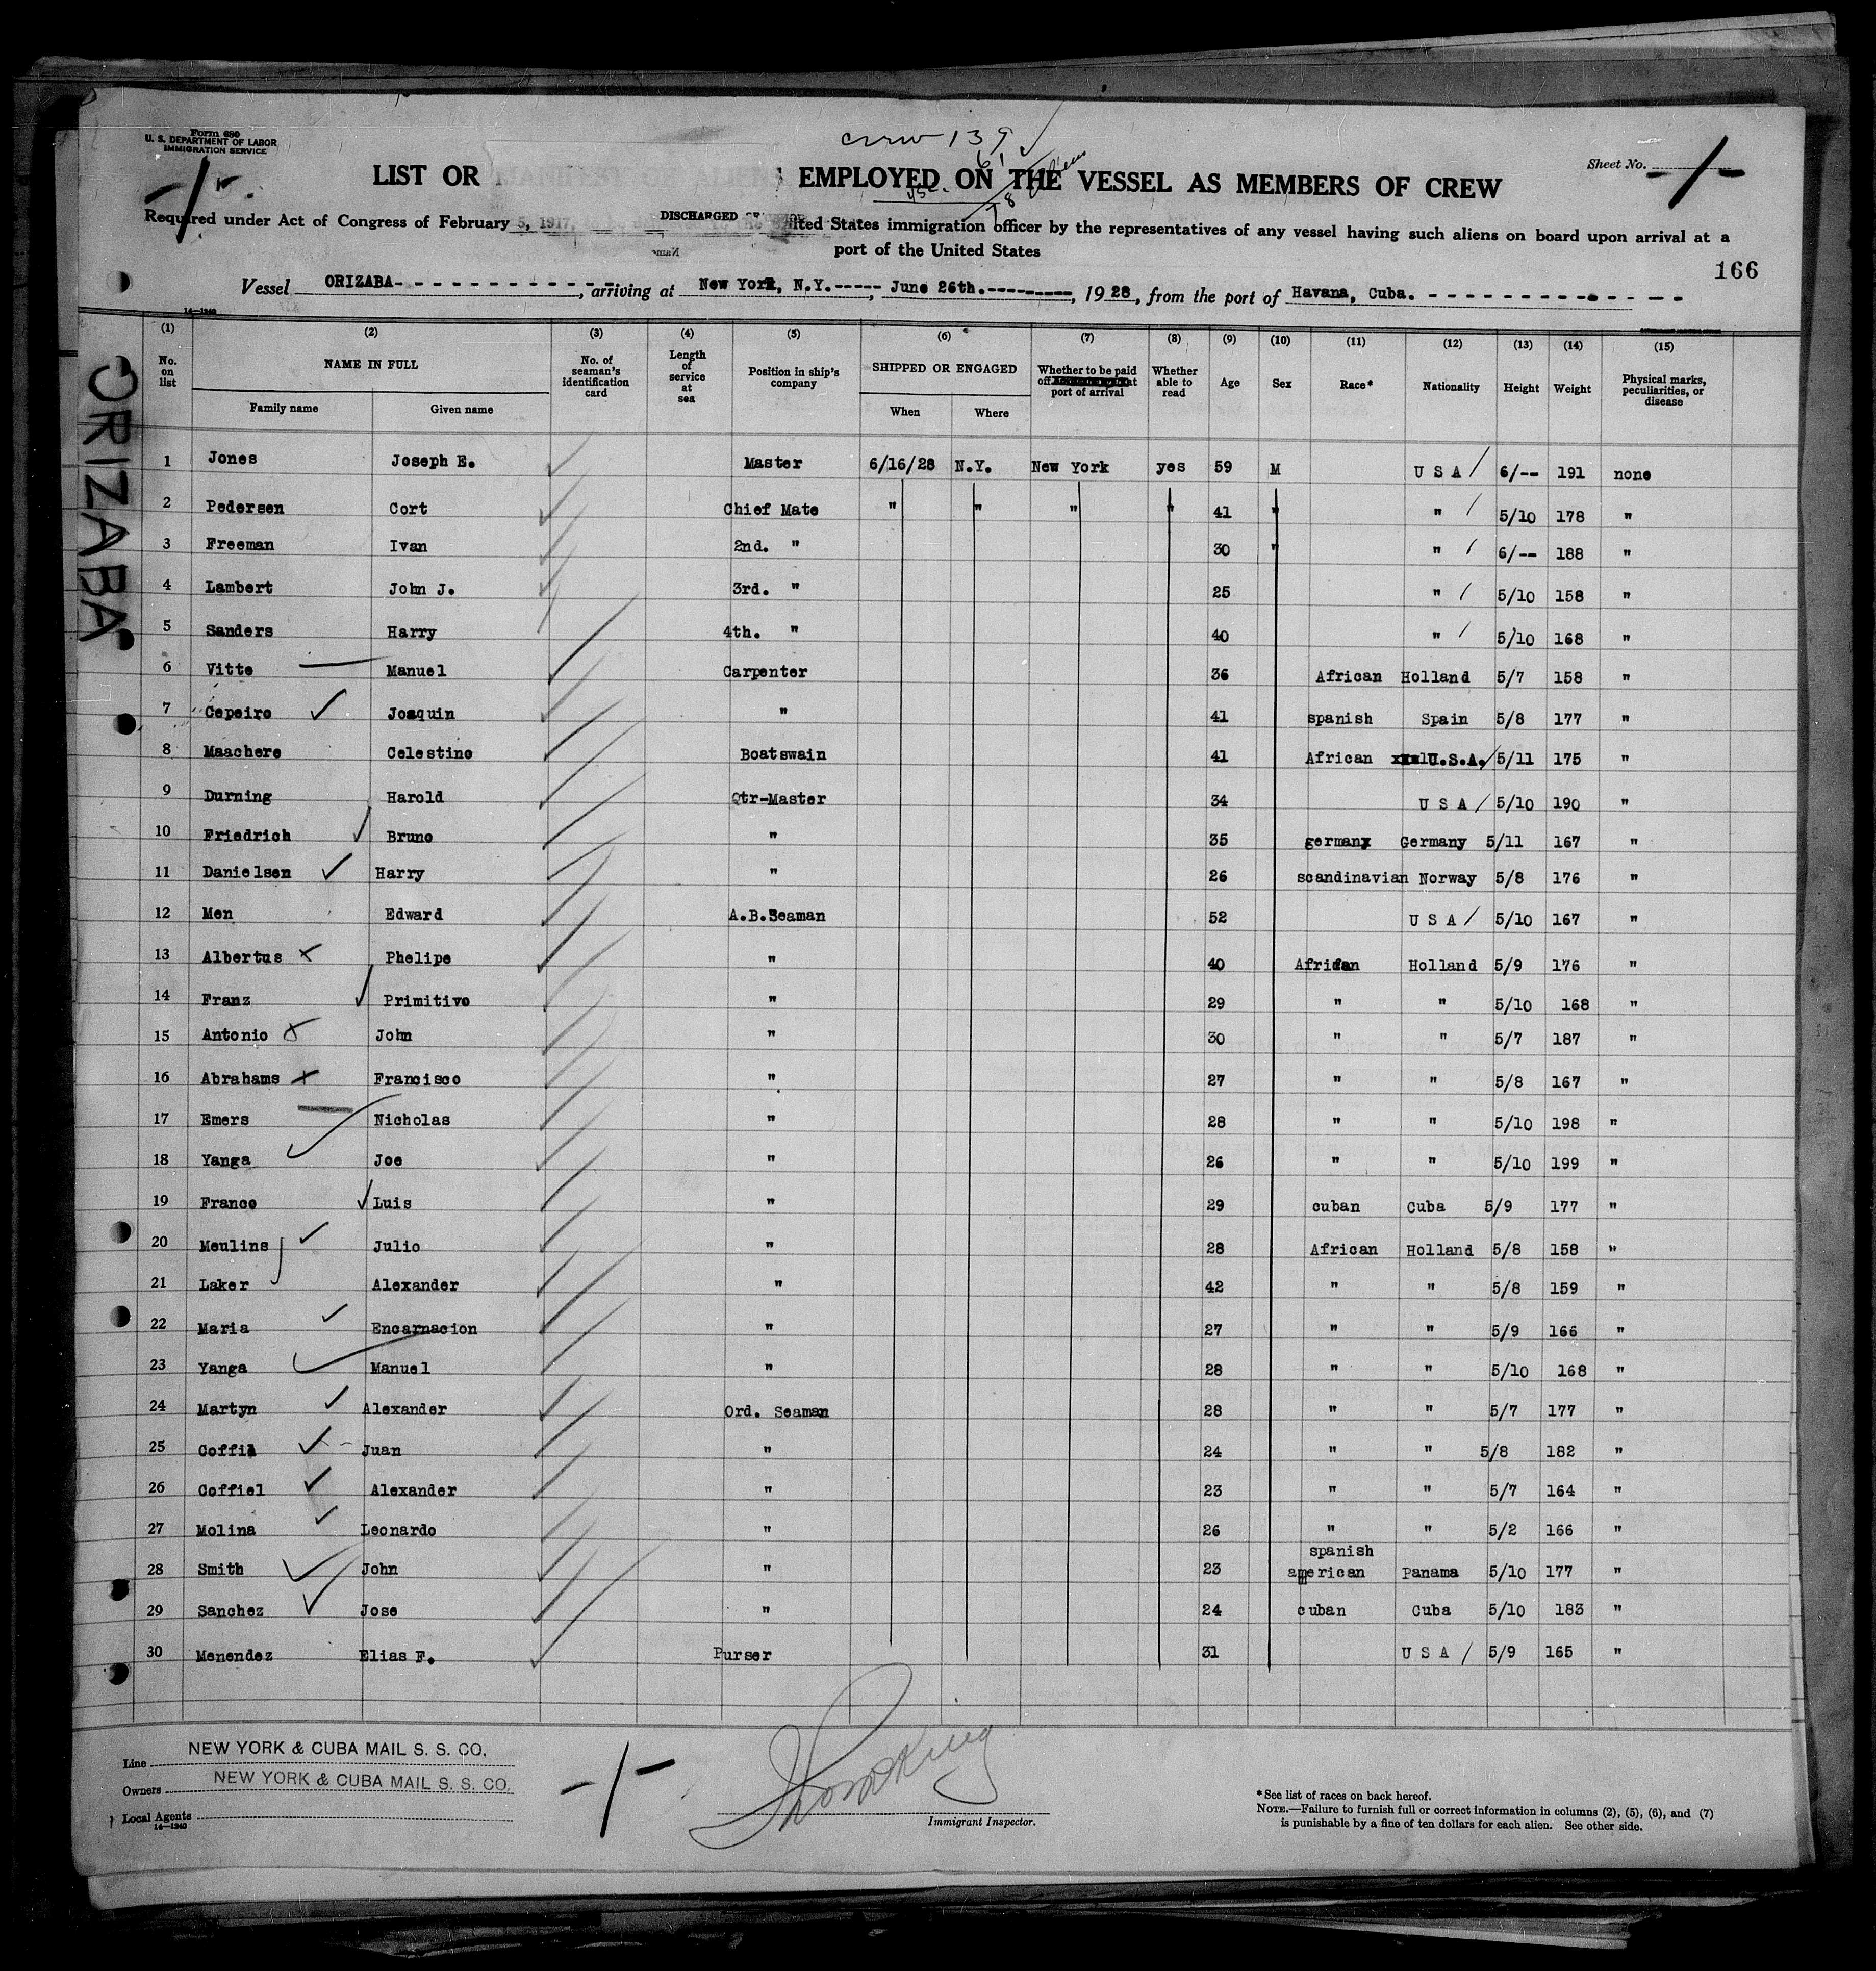 Form 680
U. S. DEPARTMENT OF LABOR
IMMIGRATION SERVICE
crew 139
61
78 aliens
Sheet No. -1-
-1-
LIST OR EMPLOYED ON THE VESSEL AS MEMBERS OF CREW
DISCHARGED
Required under Act of Congress of February 5, 1917, United States immigration officer by the representatives of any vessel having such aliens on board upon arrival at a
port of the United States
166
Vessel ORIZABA- - - - - - - - - - - -, arriving at New York, N.Y.-----, June 26th.---------, 1928, from the port of Havana, Cuba. - - - - - - - - - - - - -
14—1240
ORIZABA
(1) (2) (3) (4) (5) (6) (7) (8) (9) (10) (11) (12) (13) (14) (15)
No. on list NAME IN FULL No. of seaman's identification card Length of service at sea Position in ship's company SHIPPED OR ENGAGED Whether to be paid off at port of arrival Whether able to read Age Sex Race* Nationality Height Weight Physical marks, peculiarities, or disease
Family name Given name When Where
1 Jones Joseph E. Master 6/16/28 N.Y. New York yes 59 M U S A 6/-- 191 none
2 Pedersen Cort Chief Mate " " " " 41 " " 5/10 178 "
3 Freeman Ivan 2nd. " 30 " " 6/-- 188 "
4 Lambert John J. 3rd. " 25 " 5/10 158 "
5 Sanders Harry 4th. " 40 " 5/10 168 "
6 Vitte Manuel Carpenter 36 African Holland 5/7 158 "
7 Cepeiro Joaquin " 41 spanish Spain 5/8 177 "
8 Maachere Celestino Boatswain 41 African U.S.A. 5/11 175 "
9 Durning Harold Qtr-Master 34 U S A 5/10 190 "
10 Friedrich Bruno " 35 german Germany 5/11 167 "
11 Danielsen Harry " 26 scandinavian Norway 5/8 176 "
12 Men Edward A.B.Seaman 52 U S A 5/10 167 "
13 Albertus Phelipe " 40 African Holland 5/9 176 "
14 Franz Primitivo " 29 " " 5/10 168 "
15 Antonio John " 30 " " 5/7 187 "
16 Abrahams Francisco " 27 " " 5/8 167 "
17 Emers Nicholas " 28 " " 5/10 198 "
18 Yanga Joe " 26 " " 5/10 199 "
19 Franco Luis " 29 cuban Cuba 5/9 177 "
20 Meulins Julio " 28 African Holland 5/8 158 "
21 Laker Alexander " 42 " " 5/8 159 "
22 Maria Encarnacion " 27 " " 5/9 166 "
23 Yanga Manuel " 28 " " 5/10 168 "
24 Martyn Alexander Ord. Seaman 28 " " 5/7 177 "
25 Juan " 24 " " 5/8 182 "
26 Coffiel Alexander " 23 " " 5/7 164 "
27 Molina Leonardo " 26 " " 5/2 166 "
28 Smith John " 23 spanish american Panama 5/10 177 "
29 Sanchez Jose " 24 cuban Cuba 5/10 183 "
30 Menendez Elias F. Purser 31 U S A 5/9 165 "
Line NEW YORK & CUBA MAIL S. S. CO.
Owners NEW YORK & CUBA MAIL S. S. CO.
Local Agents
14—1240
-1-
Immigrant Inspector.
*See list of races on back hereof.
NOTE.—Failure to furnish full or correct information in columns (2), (5), (6), and (7)
is punishable by a fine of ten dollars for each alien. See other side.